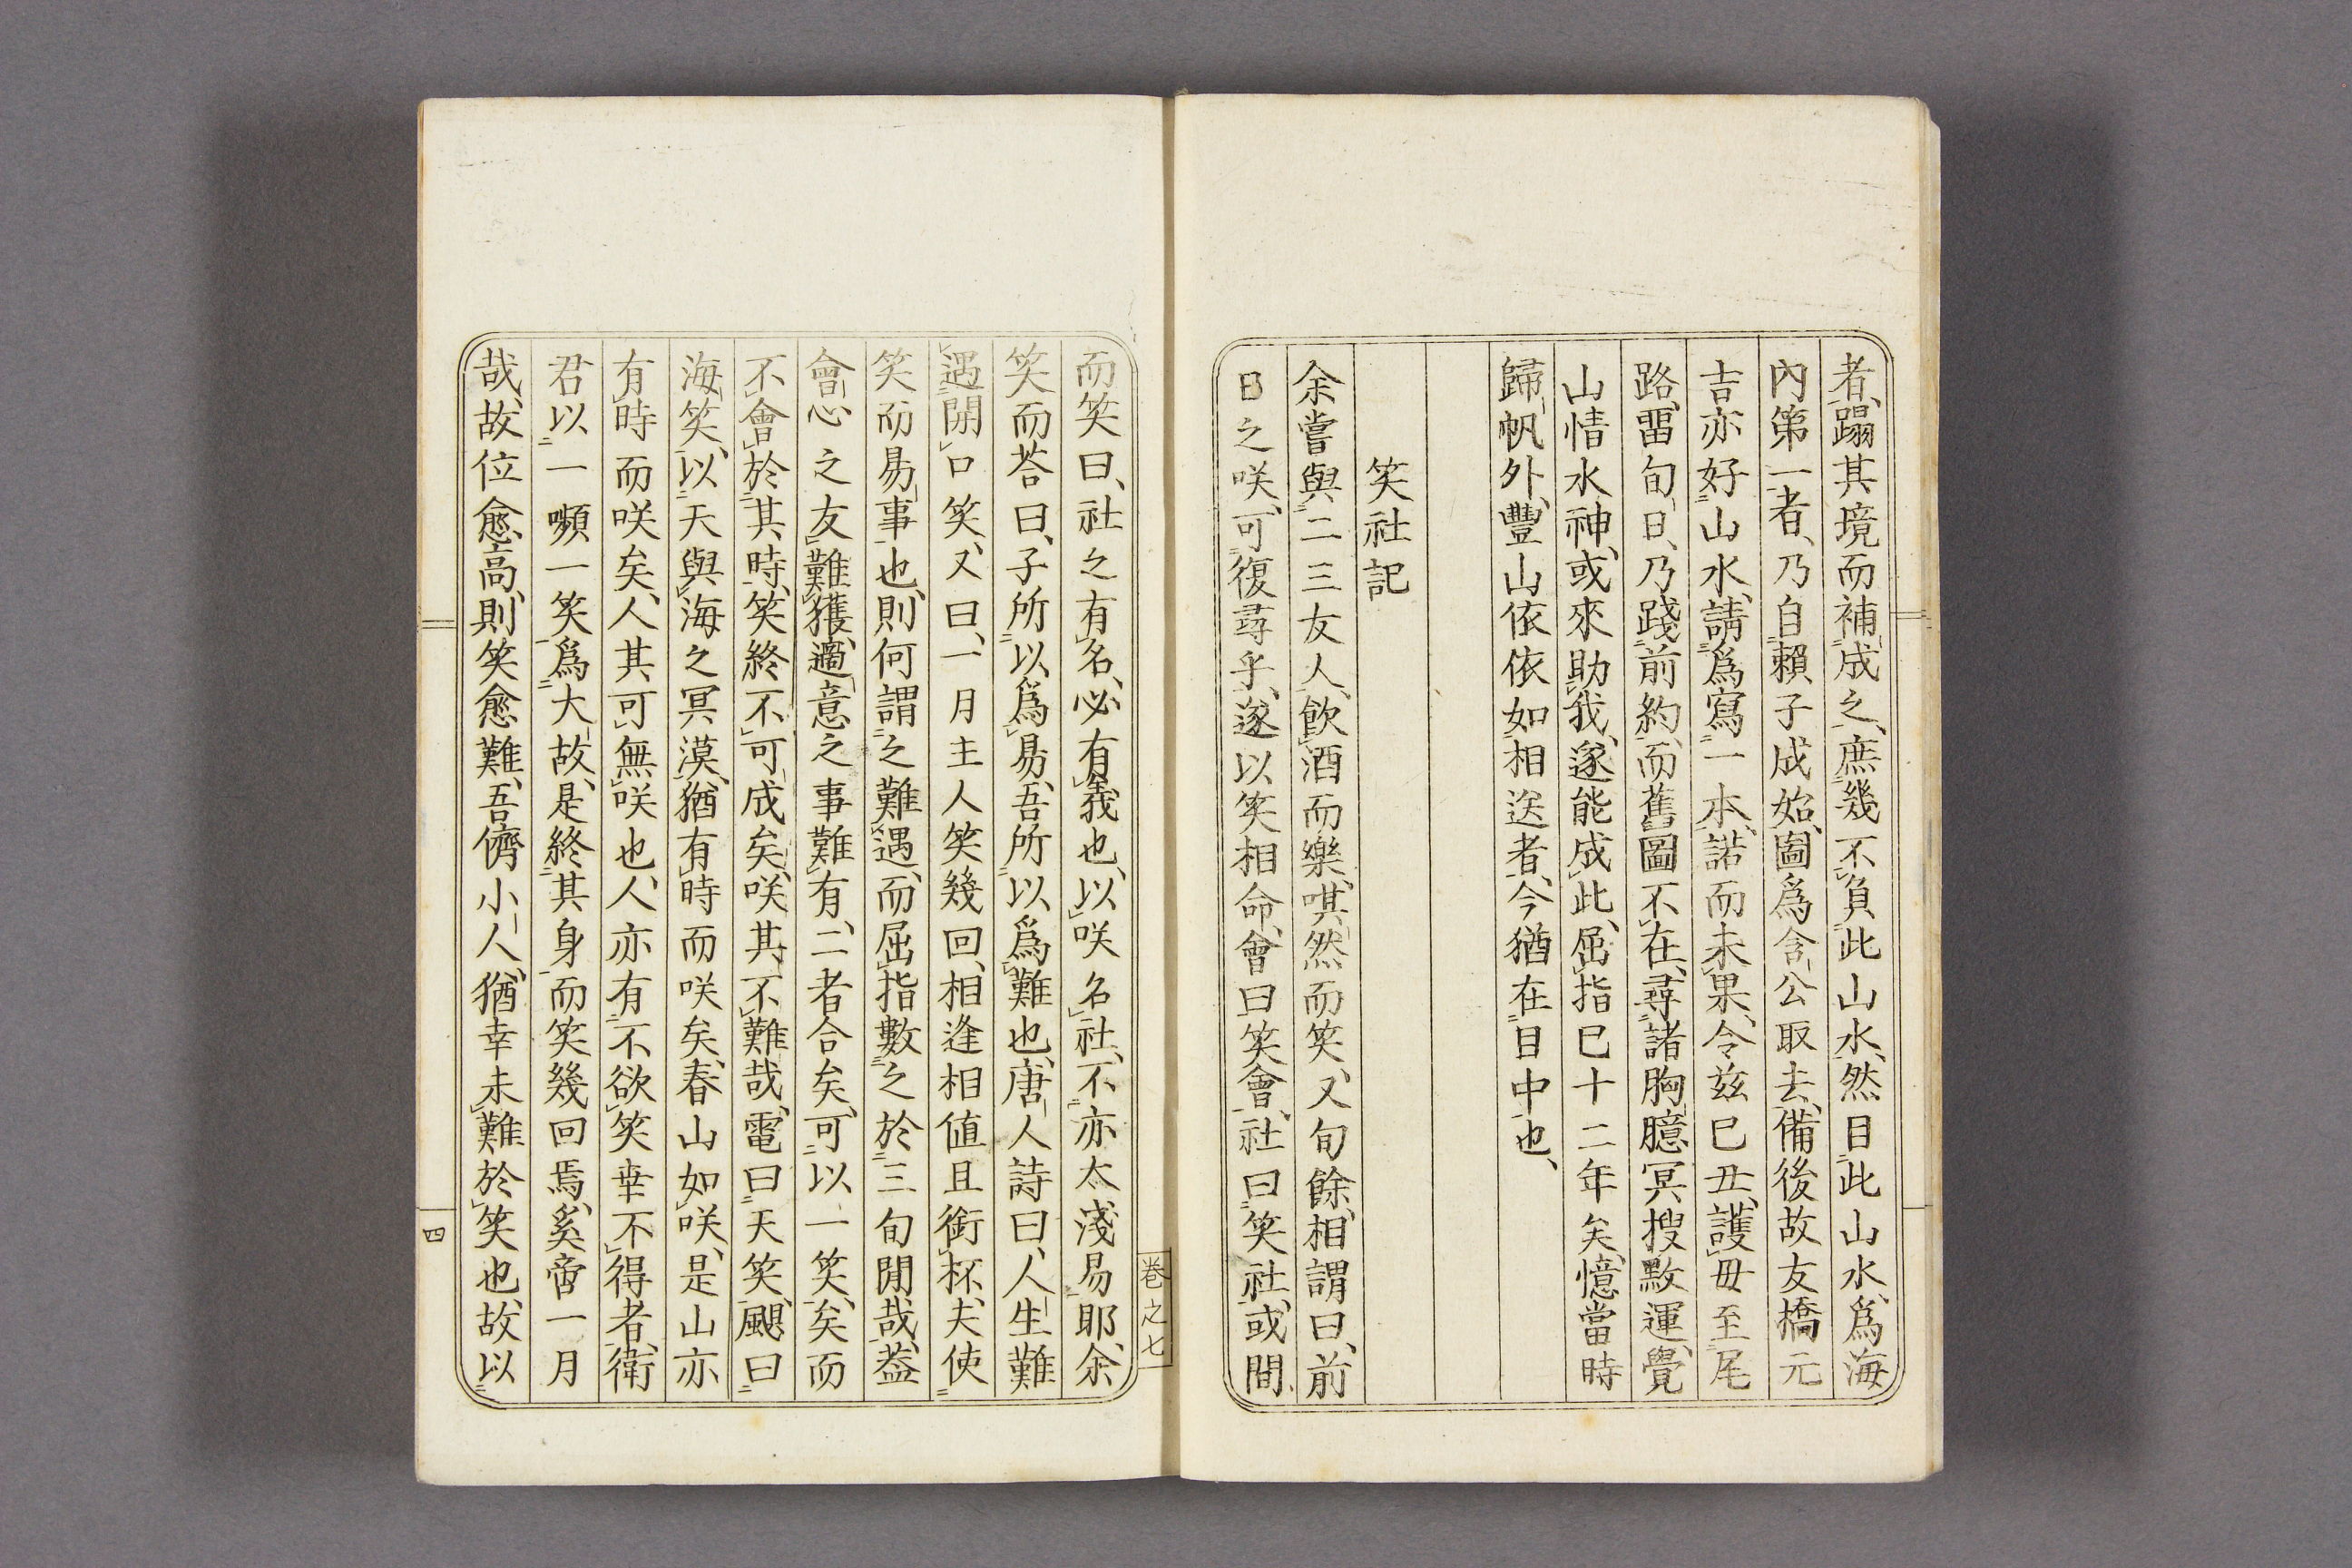 者、蹋其境而補成之、庶幾不負此山水、然目此山水、爲海
內第一者、乃自賴子成始、圖爲含公取去、備後故友橋元
吉亦好山水、請爲寫一本、諾而未果、今茲巳丑、護毋至尾
路、畱旬日、乃踐前約、而舊圖不在、尋諸胸臆、冥搜默運、覺
山情水神、或來助我、遂能成此、屈指巳十二年矣、憶當時
歸帆外、豐山依依如相送者、今猶在目中也、
笑社記
余嘗與二三友人、飮酒而樂、唭然而笑、又旬餘、相謂曰、前
日之咲、可復尋乎、遂以笑相命、會曰笑會、社曰笑社、或間
而笑曰、社之有名、必有義也、以咲名社、不亦太淺易耶、余
笑而荅曰、子所以爲易、吾所以爲難也、唐人詩曰、人生難
遇開口笑、又曰、一月主人笑幾回、相逢相値且銜杯、夫使
笑而易事也、則何謂之難遇、而屈指數之於三旬閒哉、葢
會心之友難獲、適意之事難有、二者合矣、可以一笑矣、而
不會於其時、笑終不可成矣、咲其不難哉、電曰天笑、颶曰
海笑、以天與海之冥漠、猶有時而咲矣、春山如咲、是山亦
有時而咲矣、人其可無咲也、人亦有不欲笑幸不得者、衛
君以一嚬一笑爲大故、是終其身而笑幾回焉、奚啻一月
哉、故位愈高、則笑愈難、吾儕小人、猶幸未難於笑也、故以
卷之七
四